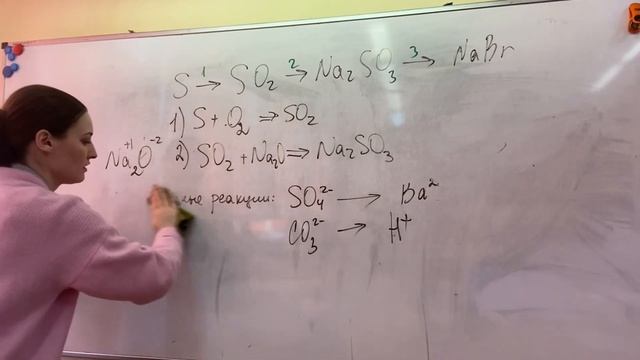 S 1→ SO₂ 2→ Na₂SO₃ 3→ NaBr
1) S + O₂ ⇒ SO₂
Na₂⁺¹O⁻² 2) SO₂ + Na₂O ⇒ Na₂SO₃
реакции: SO₄²⁻ → Ba²
CO₃²⁻ → H⁺